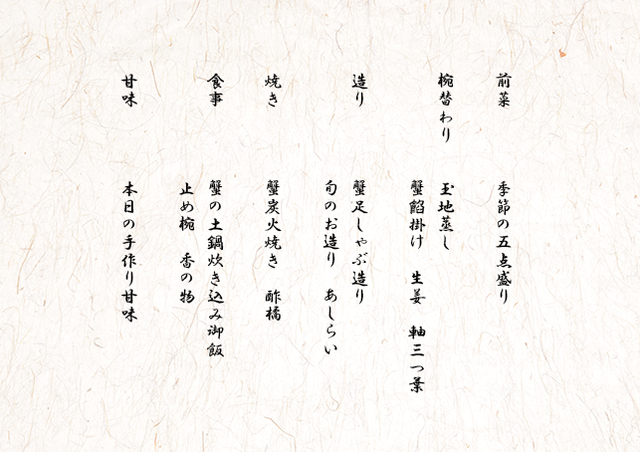 前菜　季節の五点盛り
椀替わり　玉地蒸し
蟹餡掛け　生姜　軸三つ葉
造り　蟹足しゃぶ造り
旬のお造り　あしらい
焼き　蟹炭火焼き　酢橘
食事　蟹の土鍋炊き込み御飯
止め椀　香の物
甘味　本日の手作り甘味